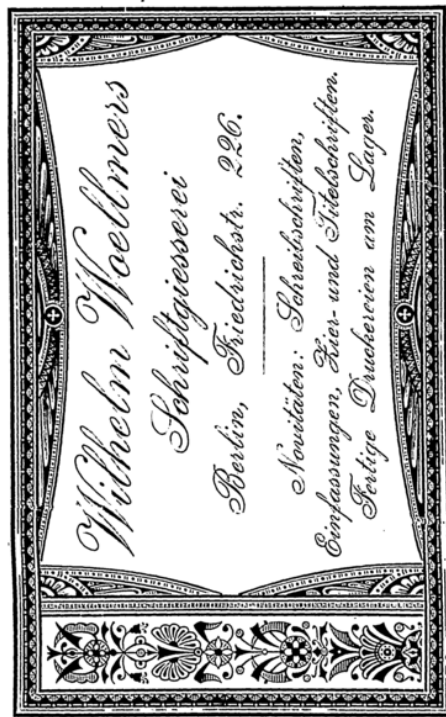 Wilhelm Woellmers
Schriftgiesserei
Berlin, Friedrichstr. 226.
Novitäten: Schreibschriften,
Einfassungen, Zier- und Titelschriften.
Fertige Druckereien am Lager.